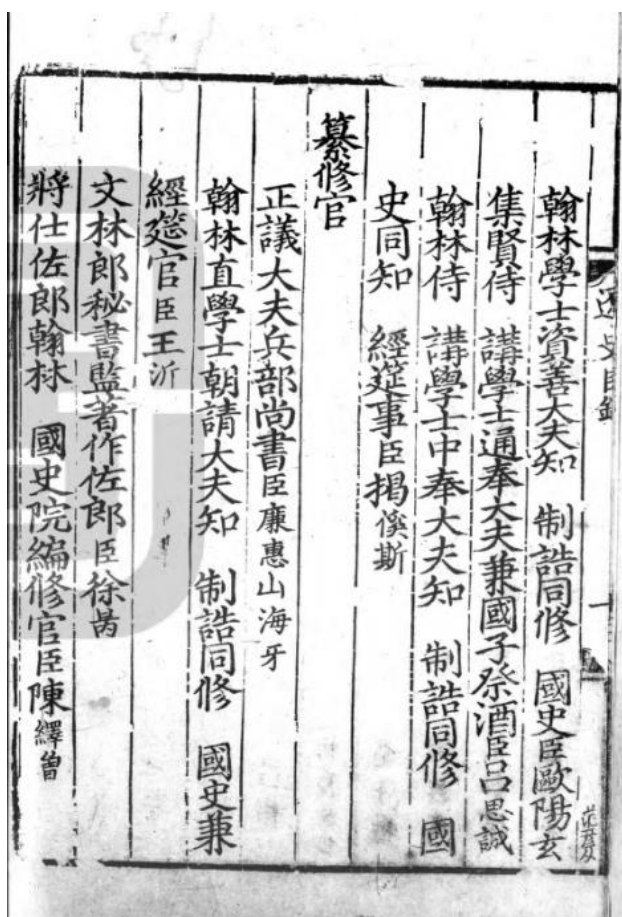 遼史目錄
一
翰林學士資善大夫知　制誥同修　國史臣歐陽玄
集賢侍　講學士通奉大夫兼國子祭酒臣呂思誠
翰林侍　講學士中奉大夫知　制誥同修　國
史同知　經筵事臣揭傒斯
纂修官
正議大夫兵部尚書臣廉惠山海牙
翰林直學士朝請大夫知　制誥同修　國史兼
經筵官臣王沂
文林郎秘書監著作佐郎臣徐昺
將仕佐郎翰林　國史院編修官臣陳繹曾